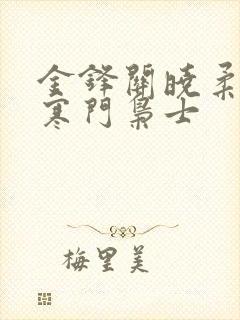 金鋒關曉柔
寒門梟士
梅里美